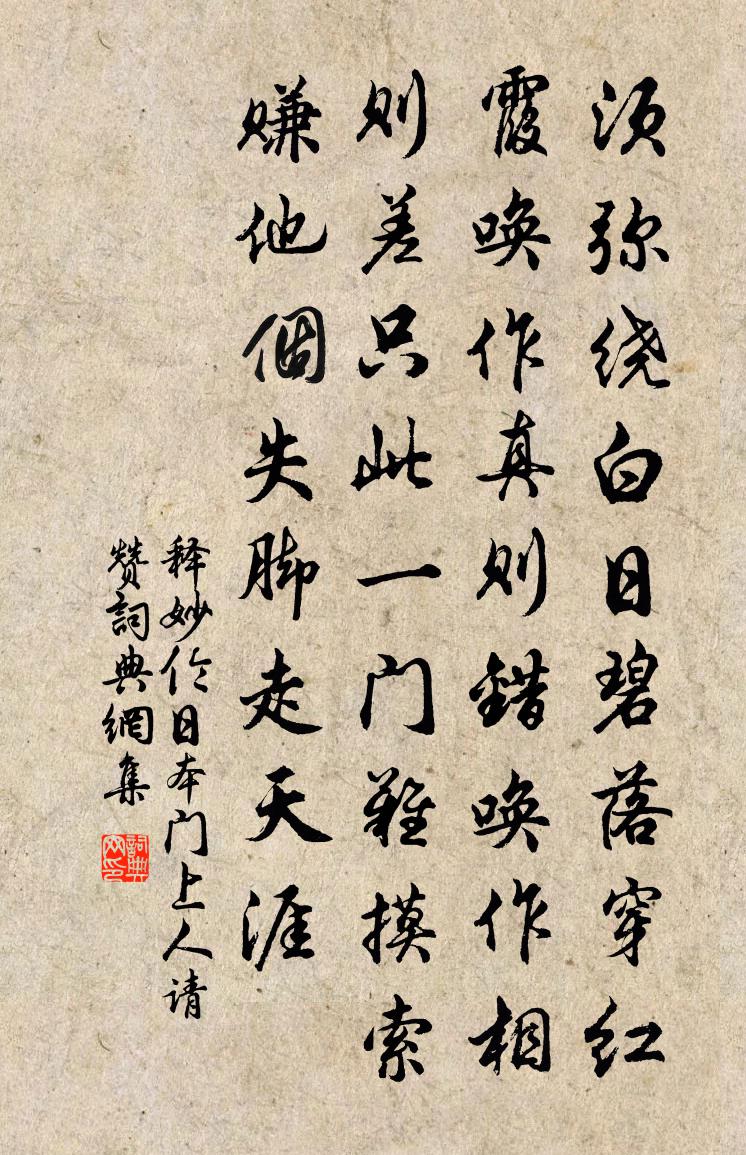 须弥绕白日碧落穿红
霞唤作真则錯唤作相
则差只此一门難摸索
赚他個失脚走天涯
释妙伦日本门上人请
赞詞典網集
詞典
网印